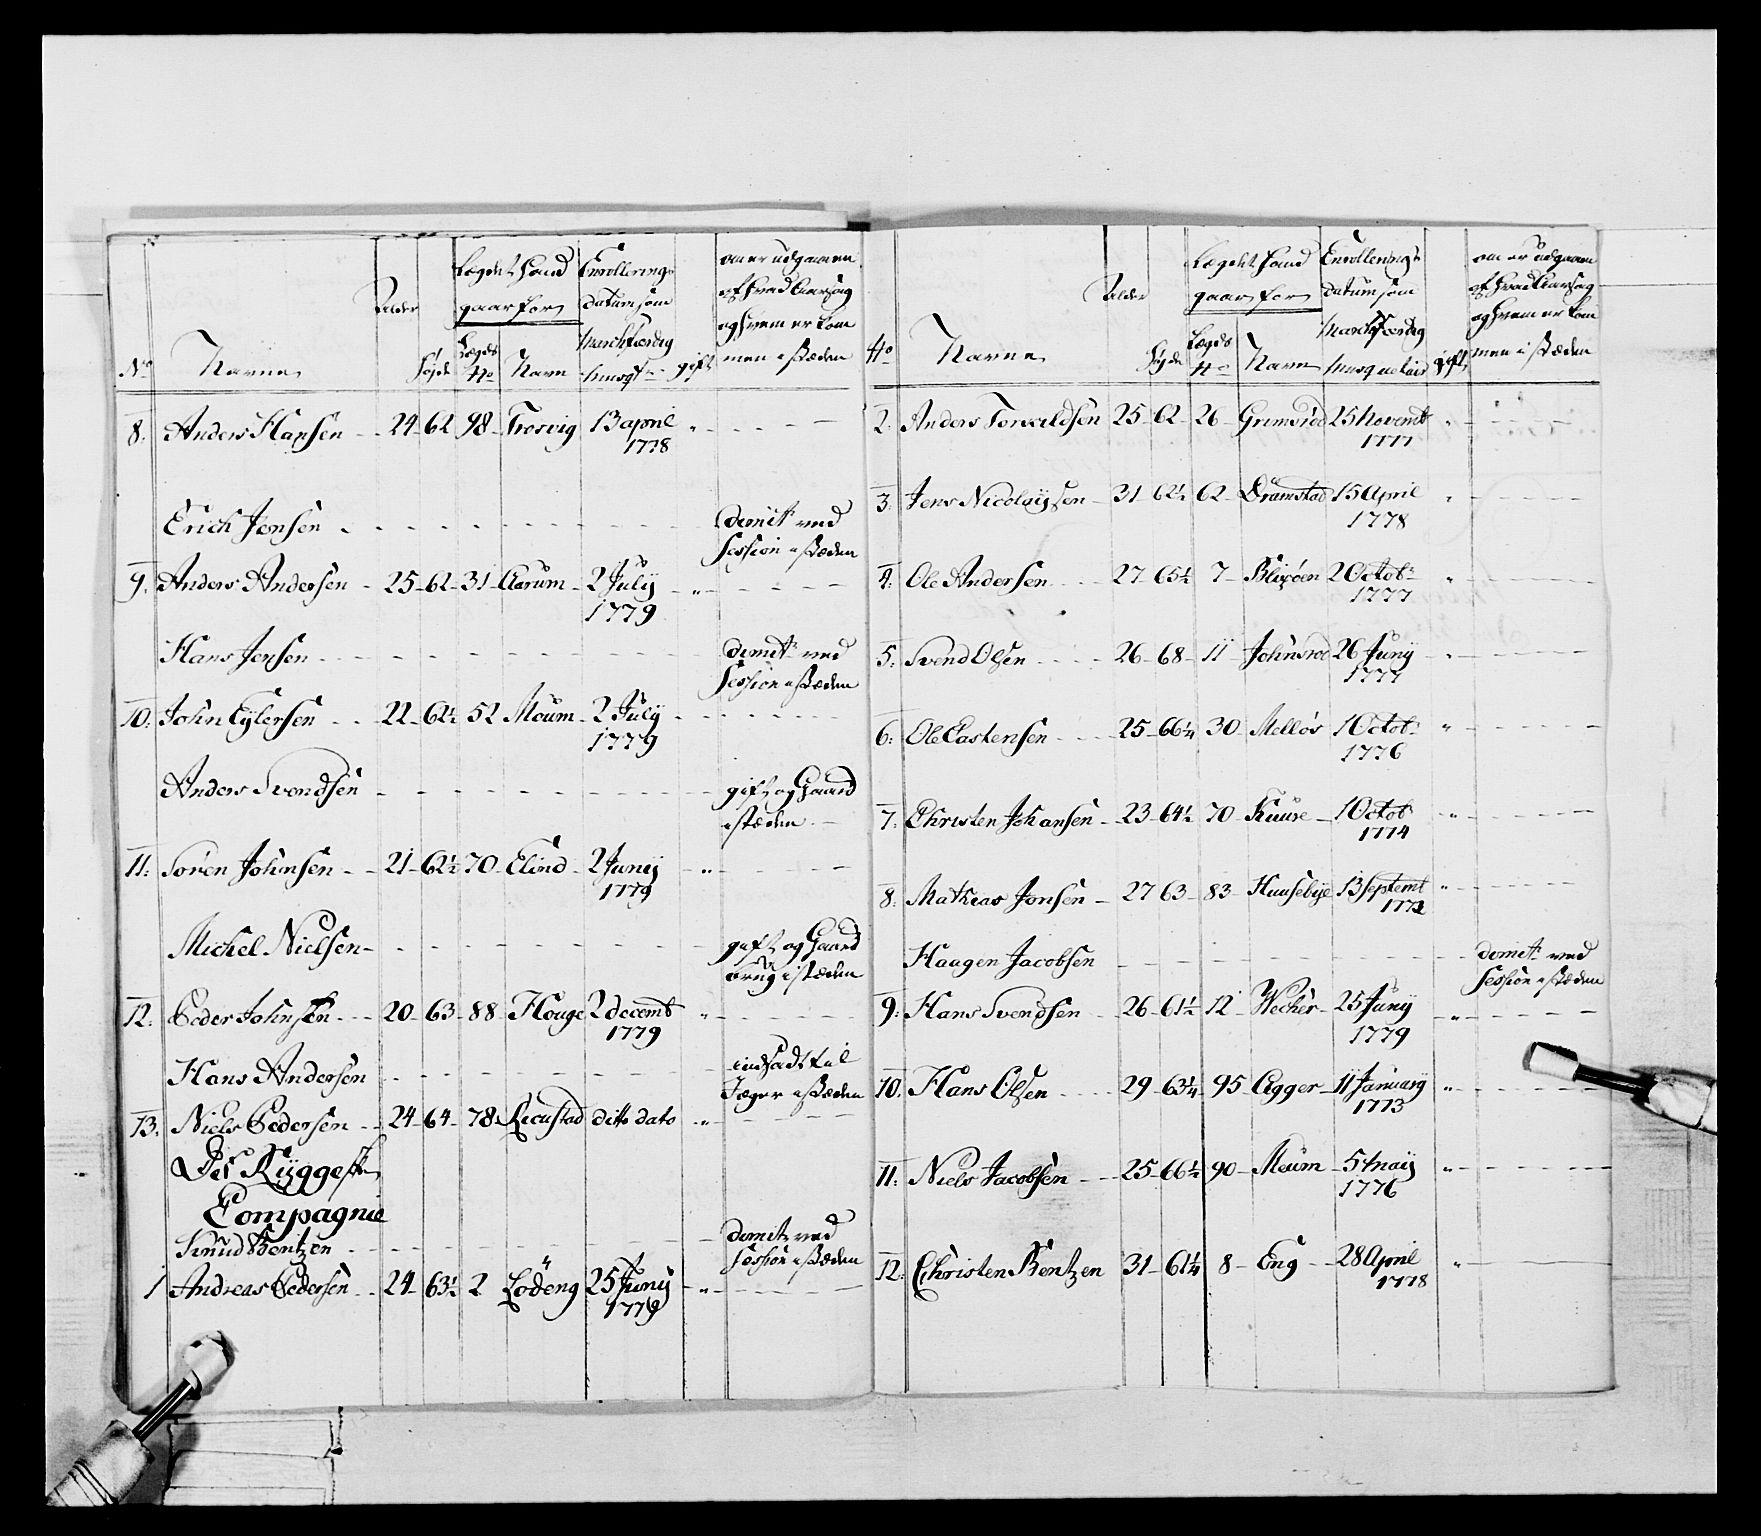 No Navne Alder Høyde Lægdet hand gaar for Lægds No Navn Enrollerings datum som Marchfærdig Musqt gift om er udgaaen af hvad Aarsag og hvem er kom men i stæden
8. Anders Hansen 24 62 98 Trosvig 13 april
1778
Erich Jensen demit ved
Session i stæden
9. Anders Andersen 25 62 31 Aarum 2 July "
1779
Hans Jensen demit ved
Session i stæden
10. John Eylersen 22 62½ 52 Moum 2 July
1779
Anders Svendsen gift og Gaard
i stæden
11. Sören Johnsen 21 62½ 70 Elind 2 Junij "
1779
Michel Nielsen gift og Gaard
brug i stæden
12. Peder Johnsen 20 63 88 Houge 2 decemt "
1779
Hans Andersen indsadt til
Jæger i stæden
13. Niels Pedersen 24 64 78 ditto dato "
Det Rygge
Compagnie
Knud Bentzen demit ved
Session i stæden
1 Andreas Pedersen 24 63½ 2 Lödeng 25 Junij "
1779
No Navne Alder Høyde Lægdet hand gaar for Lægds No Navn Enrollerings datum som Marchfærdig Musquetair gift om er udgaaen af hvad Aarsag og hvem er kom men i stæden
2. Anders Torvildsen 25 62 26 Grimsröd 25 Novemt "
1777
3. Jens Nicolaysen 31 62½ 62 Dramstad 15 April "
1778
4. Ole Andersen 27 65¼ 7 Blixöen 2 Octob "
1777
5. Svend Olsen 26 68 11 Johnsrod 26 Juny "
1777
6. Ole Castensen 25 66¼ 30 Mellös 1 Octob "
1776
7. Christen Johansen 23 64½ 70 Kuure 1 Octob "
1774
8. Mathias Jonsen 27 63 83 Huusebye 13 Septemt "
1772
Haagen Jacobsen demit ved
Session i stæden
9. Hans Svendsen 26 61½ 12 25 Juny "
1779
10. Hans Olsen 29 63¼ 95 Agger 11 January "
1773
11. Niels Jacobsen 25 66¼ 90 Meum 5 Maij "
1776
12. Christen Bentzen 31 61¼ 8 Eng 28 April "
1778